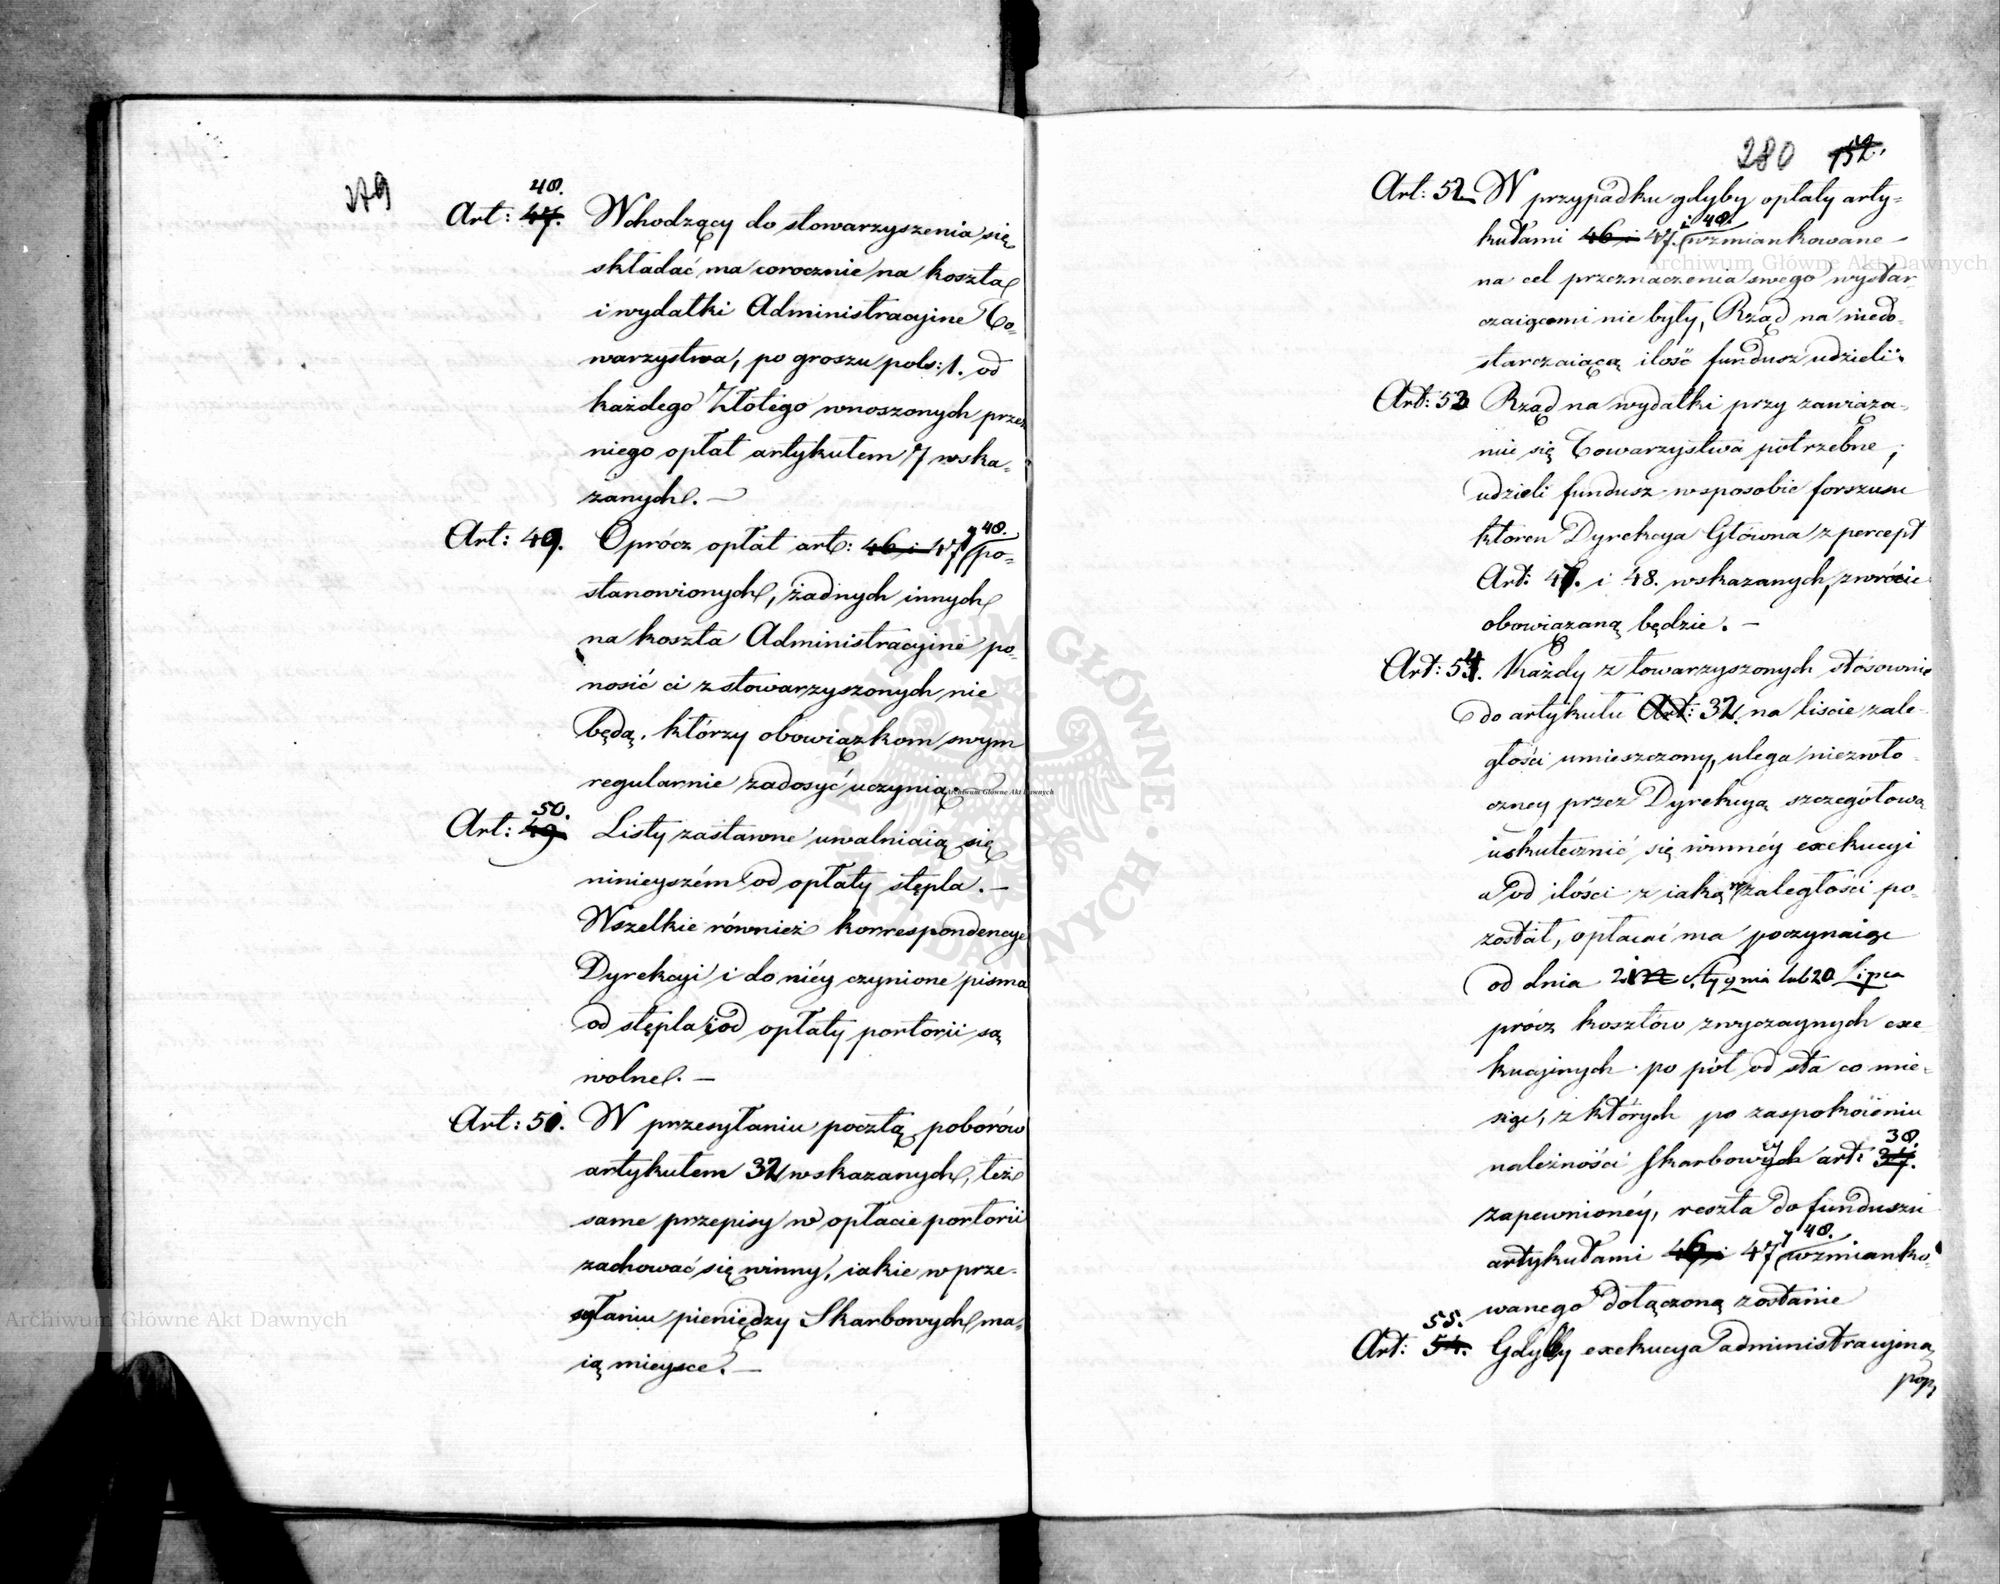 279
48.
Art: 47. Wchodzący do stowarzyszenia się
składać ma corocznie na koszta
i wydatki Administracyine To-
warzystwa, po groszu pols: 1. od
każdego Złotego wnoszonych przez
niego opłat artykułem 7 wska-
zanych. —
Art: 49. Oprócz opłat art: 46 i 47 y 48. po-
stanowionych, żadnych innych
na koszta Administracyine po-
nosić ci z stowarzyszonych nie
będą, którzy obowiązkom swym
regularnie zadosyć uczynią. —
50.
Art: 49 Listy zastawne uwalniaią się
ninieyszém od opłaty stępla. —
Wszelkie również korrespondencye
Dyrekcyi i do niéy czynione pisma
od stępla i od opłaty portorii są
wolne. —
Art: 51. W przesyłaniu pocztą poborów
artykułem 32 wskazanych, też
same przepisy w opłacie portorii
zachować się winny, iakie w prze-
syłaniu pieniędzy Skarbowych ma-
ią mieysce. —
280 152.
Art: 52 W przypadku gdyby opłaty arty-
kułami 46 i 47. i 48. wzmiankowane
na cel przeznaczenia swego wystar-
czaiącemi nie były, Rząd na niedo-
starczaiącą ilość fundusz udzieli.
Art: 53 Rząd na wydatki przy zawiąza-
niu się Towarzystwa potrzebne,
udzieli fundusz w sposobie forszusu
ktoren Dyrekcya Główna z percept
Art: 47. i 48. wskazanych, zwrócić
obowiązaną będzie. —
Art: 54. Każdy z towarzyszonych stósownie
do artykułu Art: 32 na liście zale-
głości umieszczony, ulega niezwło-
czney przez Dyrekcyą szczegółową
uskutecznić się winnéy exekucyi
a od ilości z iaką w zaległości po-
został, opłacać ma poczynaiąc
od dnia Stycznia lub 20 Lipca
prócz kosztów zwyczaynych exe-
kucyinych po pół od sta co mie-
siąc, z których po zaspokoieniu
należności skarbowych art: 37. 38.
zapewnionéy, reszta do funduszu
artykułami 46 i 47 y 48. wzmianko-
wanego dołączoną zostanie
55.
Art: 54. Gdyby exekucya administracyina
pop,
Archiwum Główne Akt Dawnych
Archiwum Główne Akt Dawnych
Archiwum Główne Akt Dawnych
ARCHIWUM GŁÓWNE AKT DAWNYCH